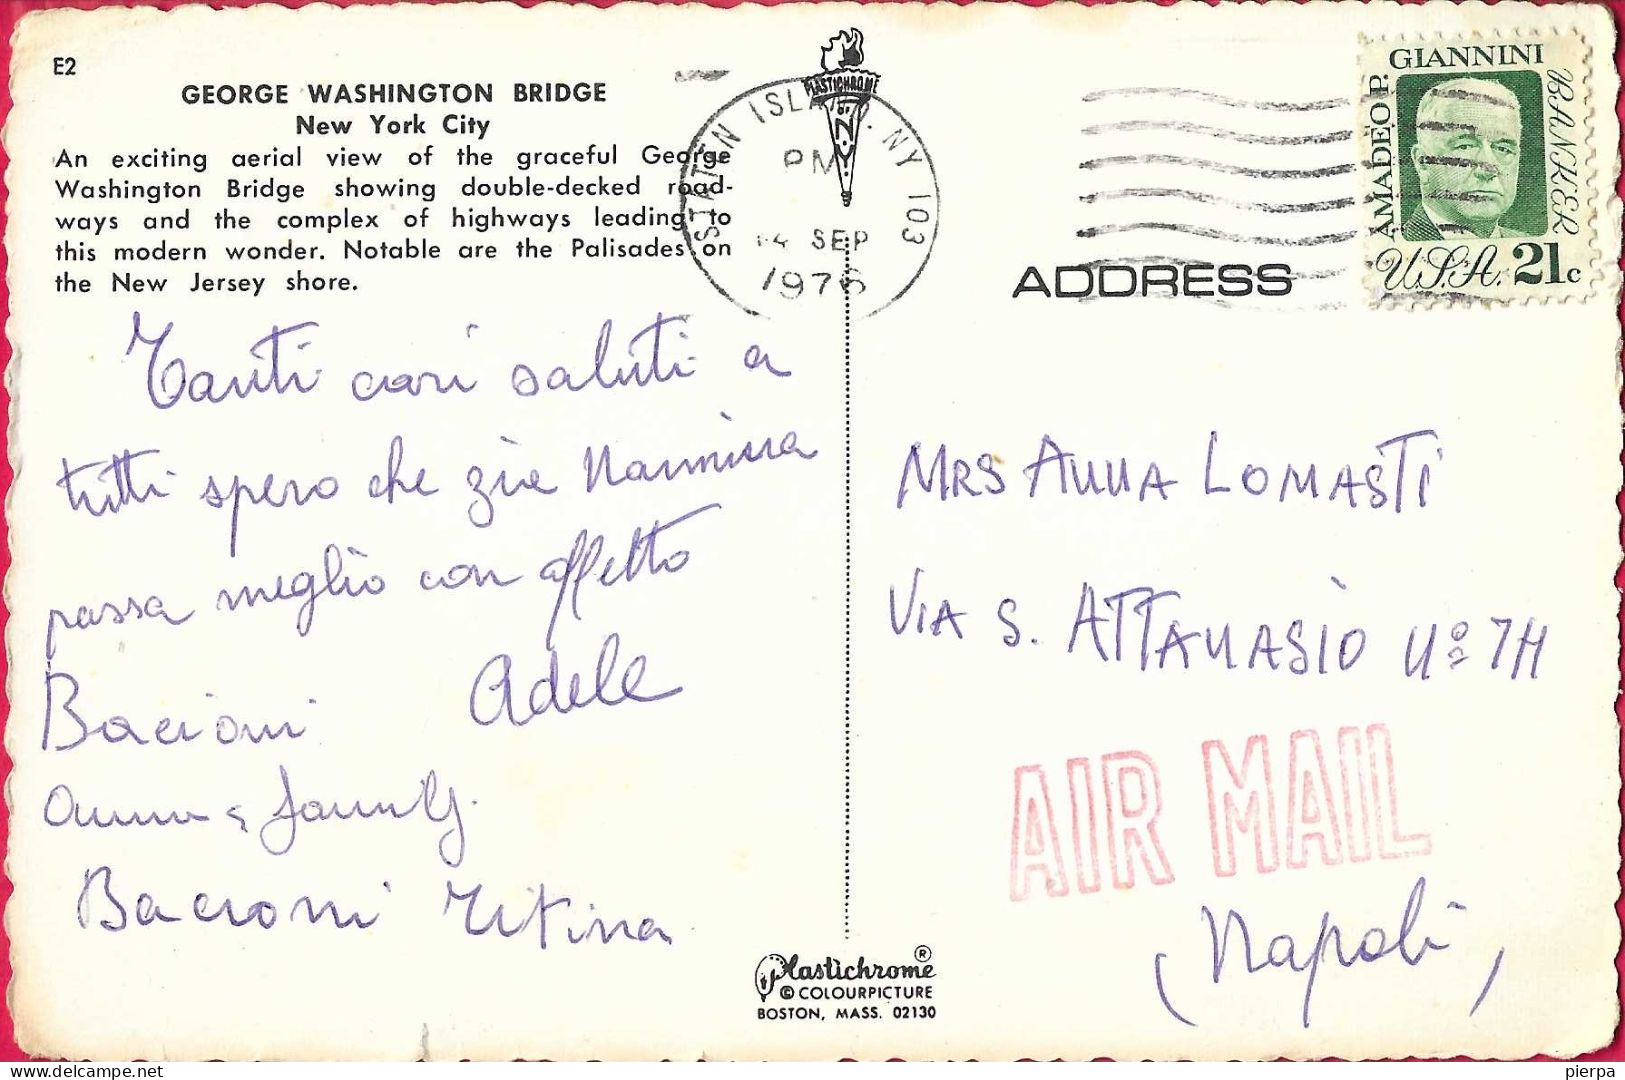 E2
GEORGE WASHINGTON BRIDGE
New York City
An exciting aerial view of the graceful George
Washington Bridge showing double-decked road-
ways and the complex of highways leading to
this modern wonder. Notable are the Palisades on
the New Jersey shore.
Tanti cari saluti a
tutti spero che zia Nannina
passa meglio con affetto
Adele
Bacioni
Bacioni Titina
PLASTICHROME
N.Y.
STATEN ISLAND, NY 103
PM
SEP
1976
AMADEO P. GIANNINI
BANKER
U.S.A. 21c
ADDRESS
MRS ANNA LOMASTI
VIA S. ATTANASIO Nº 7H
AIR MAIL
(Napoli)
Plastichrome ®
© COLOURPICTURE
BOSTON, MASS. 02130
delcampe.net
pierpa